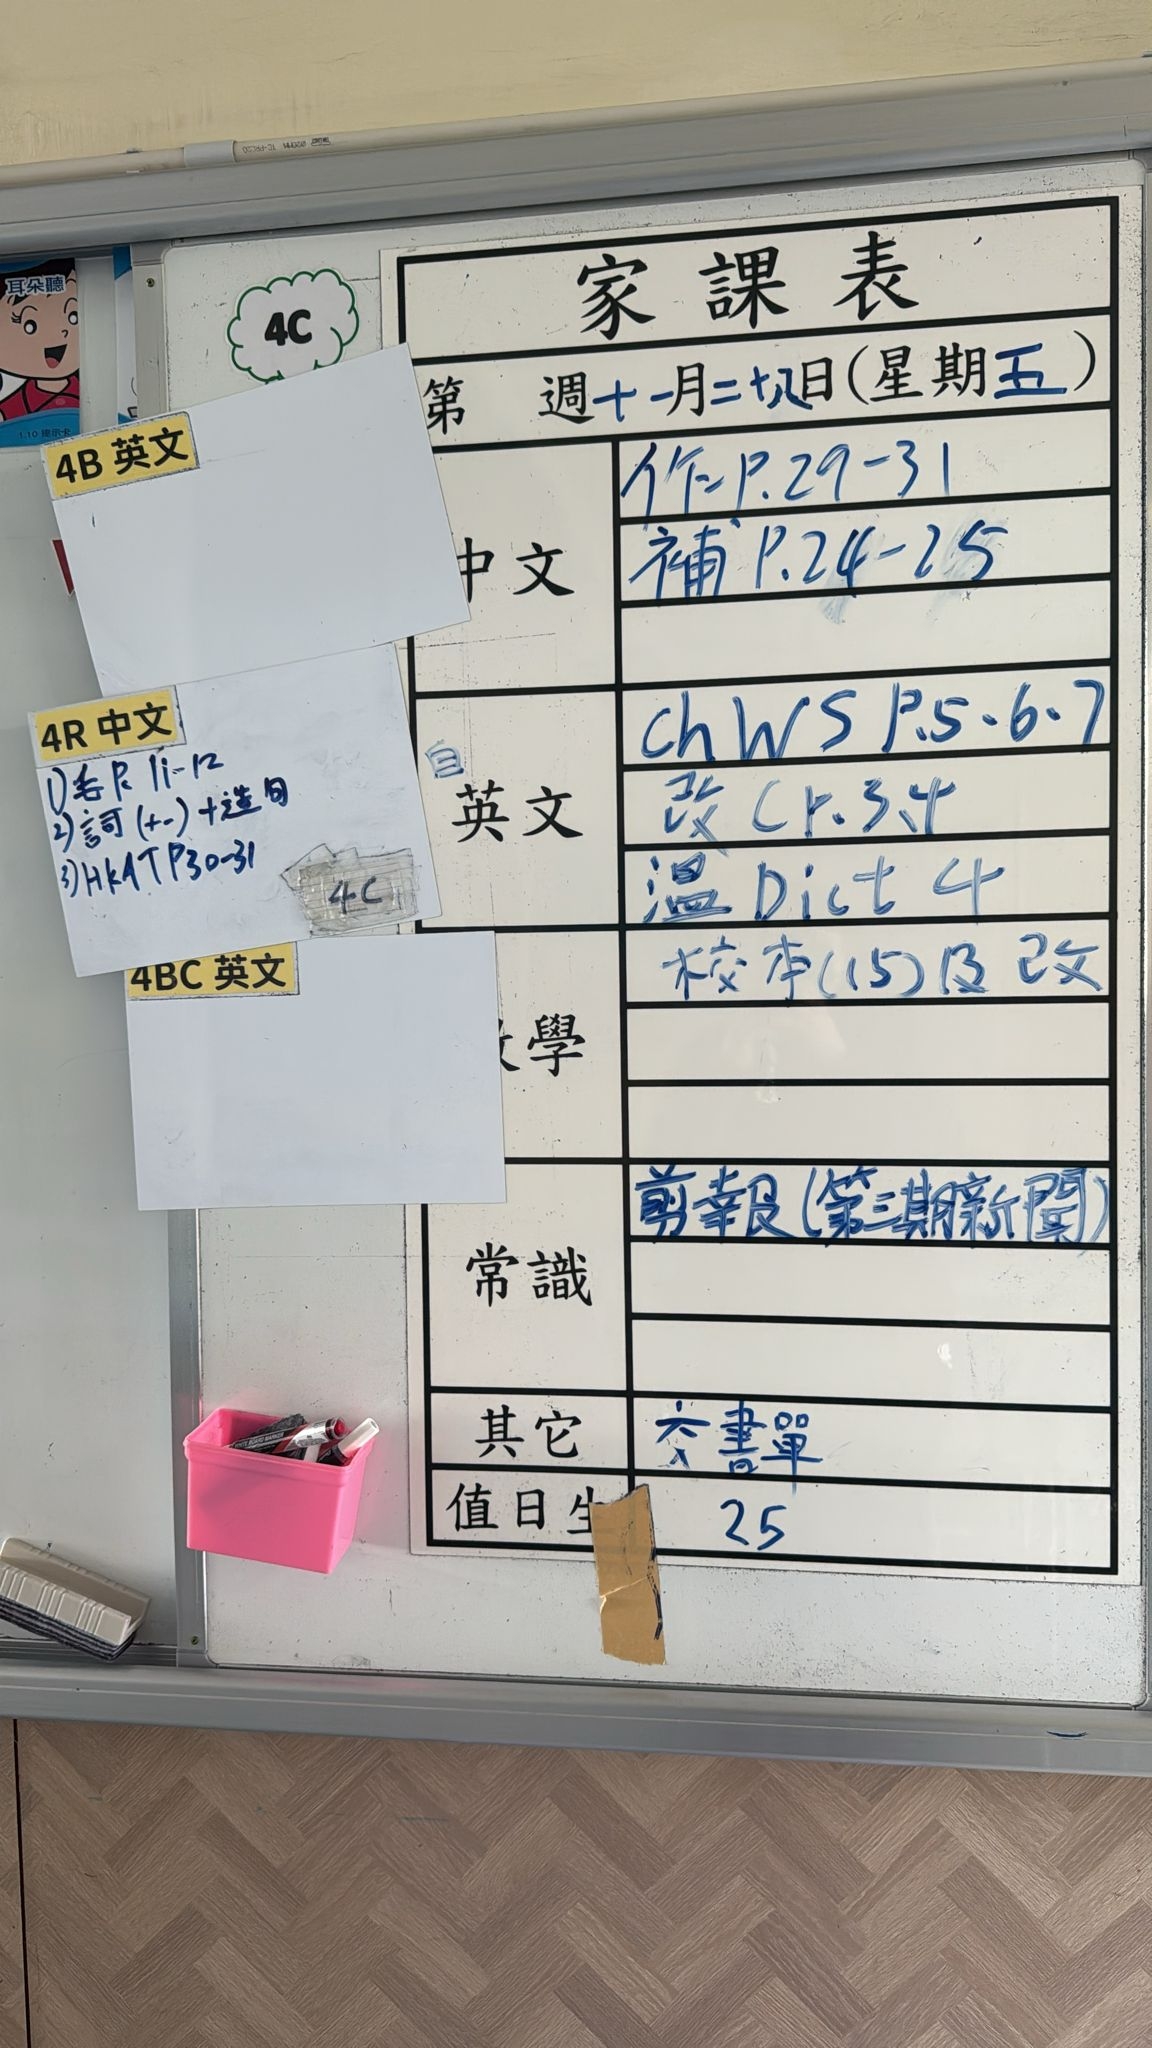 耳朵聽
1.10 提示卡
4C
家課表
第 週十一月二十八日(星期五)
4B 英文
中文
作二P.29-31
補 P.24-25
4R 中文
2)詞(十一)+造句
3)HKAT P30-31
4C
自
英文
Ch WS P.5、6、7
改 Cr.3,4
溫 Dict 4
4BC 英文
學
校本(15)及改
常識
剪報(第三期新聞)
其它
交書單
值日生
25